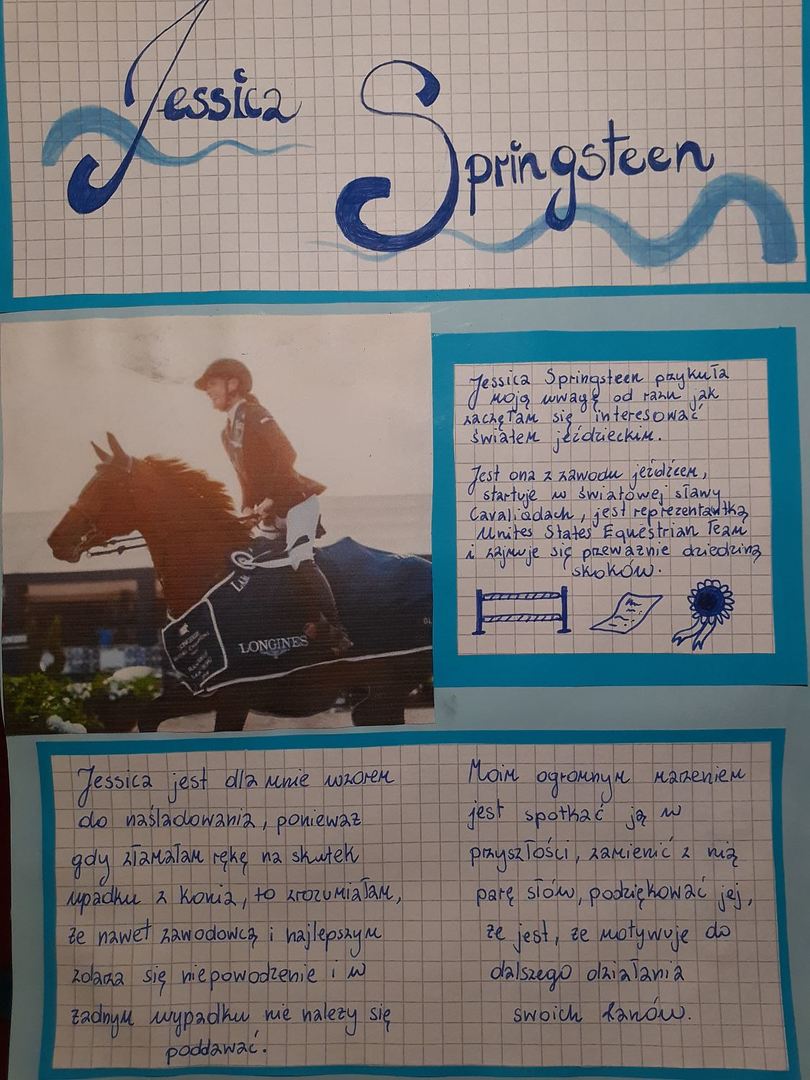 Jessica
Springsteen
Jessica Springsteen przykuła
moją uwagę od razu jak
zaczęłam się interesować
światem jeździeckim.
Jest ona z zawodu jeźdźcem,
startuje w światowej sławy
Cavaliadach, jest reprezentantką
Unites States Equestrian Team
i zajmuje się przeważnie dziedziną
skoków.
LONGINES
Jessica jest dla mnie wzorem
do naśladowania, ponieważ
gdy złamałam rękę na skutek
upadku z konia, to zrozumiałam,
że nawet zawodowcą i najlepszym
zdarza się niepowodzenie i w
żadnym wypadku nie należy się
poddawać.
Moim ogromnym marzeniem
jest spotkać ją w
przyszłości, zamienić z nią
parę słów, podziękować jej,
że jest, że motywuje do
dalszego działania
swoich fanów.